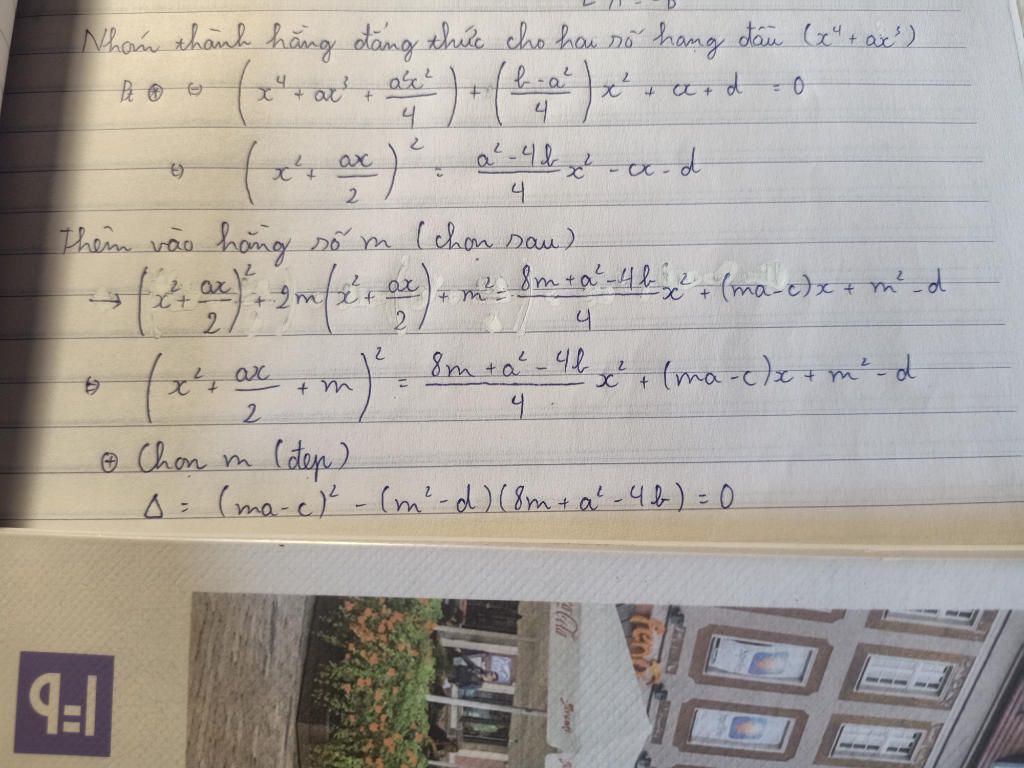 Nhóm thành hằng đẳng thức cho hai số hạng đầu (x⁴ + ax³)
Pt ⊕ ⇔ (x⁴ + ax³ + a²x²/4) + (b - a²/4)x² + cx + d = 0
⇔ (x² + ax/2)² = (a² - 4b)/4 x² - cx - d
Thêm vào hằng số m (chọn sau)
→ (x² + ax/2)² + 2m(x² + ax/2) + m² = (8m + a² - 4b)/4 x² + (ma - c)x + m² - d
⇔ (x² + ax/2 + m)² = (8m + a² - 4b)/4 x² + (ma - c)x + m² - d
⊕ Chọn m (đẹp)
Δ = (ma - c)² - (m² - d)(8m + a² - 4b) = 0